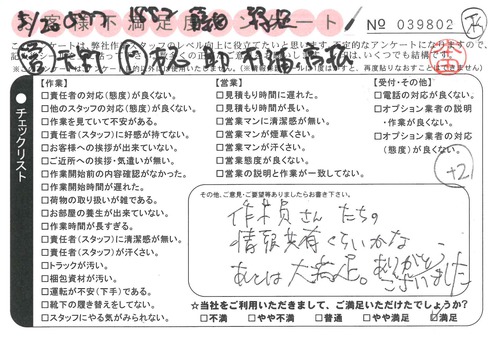 お客様不満足 シート
№ 039802
【作業】
□責任者の対応(態度)が良くない。
□他のスタッフの対応(態度)が良くない。
□作業を見ていて不安がある。
□責任者(スタッフ)に好感が持てない。
□お客様への挨拶が出来ていない。
□ご近所への挨拶・気遣いが無い。
□作業開始前の内容確認がなかった。
□作業開始時間が遅れた。
□荷物の取り扱いが雑である。
□お部屋の養生が出来ていない。
□作業時間が長すぎる。
□責任者(スタッフ)に清潔感が無い。
□責任者(スタッフ)が汗くさい。
□トラックが汚い。
□梱包資材が汚い。
□運転が不安(下手)である。
□靴下の履き替えをしてない。
□スタッフにやる気がみられない。
【営業】
□見積もり時間に遅れた。
□見積もり時間が長い。
□営業マンに清潔感が無い。
□営業マンが煙草くさい。
□営業マンが汗くさい。
□営業態度が良くない。
□営業の説明と作業が一致してない。
【受付・その他】
□電話の対応が良くない。
□オプション業者の説明
・作業が良くない。
□オプション業者の対応
(態度)が良くない。
●チェックリスト
+21
その他、ご意見・ご要望等ありましたらお書き下さい。
作業員さん たちの
情報共有くらいかな
あとは大満足。ありがとう
ございました
☆当社をご利用いただきまして、ご満足いただけたでしょうか?
□不満 □やや不満 □普通 □やや満足 満足